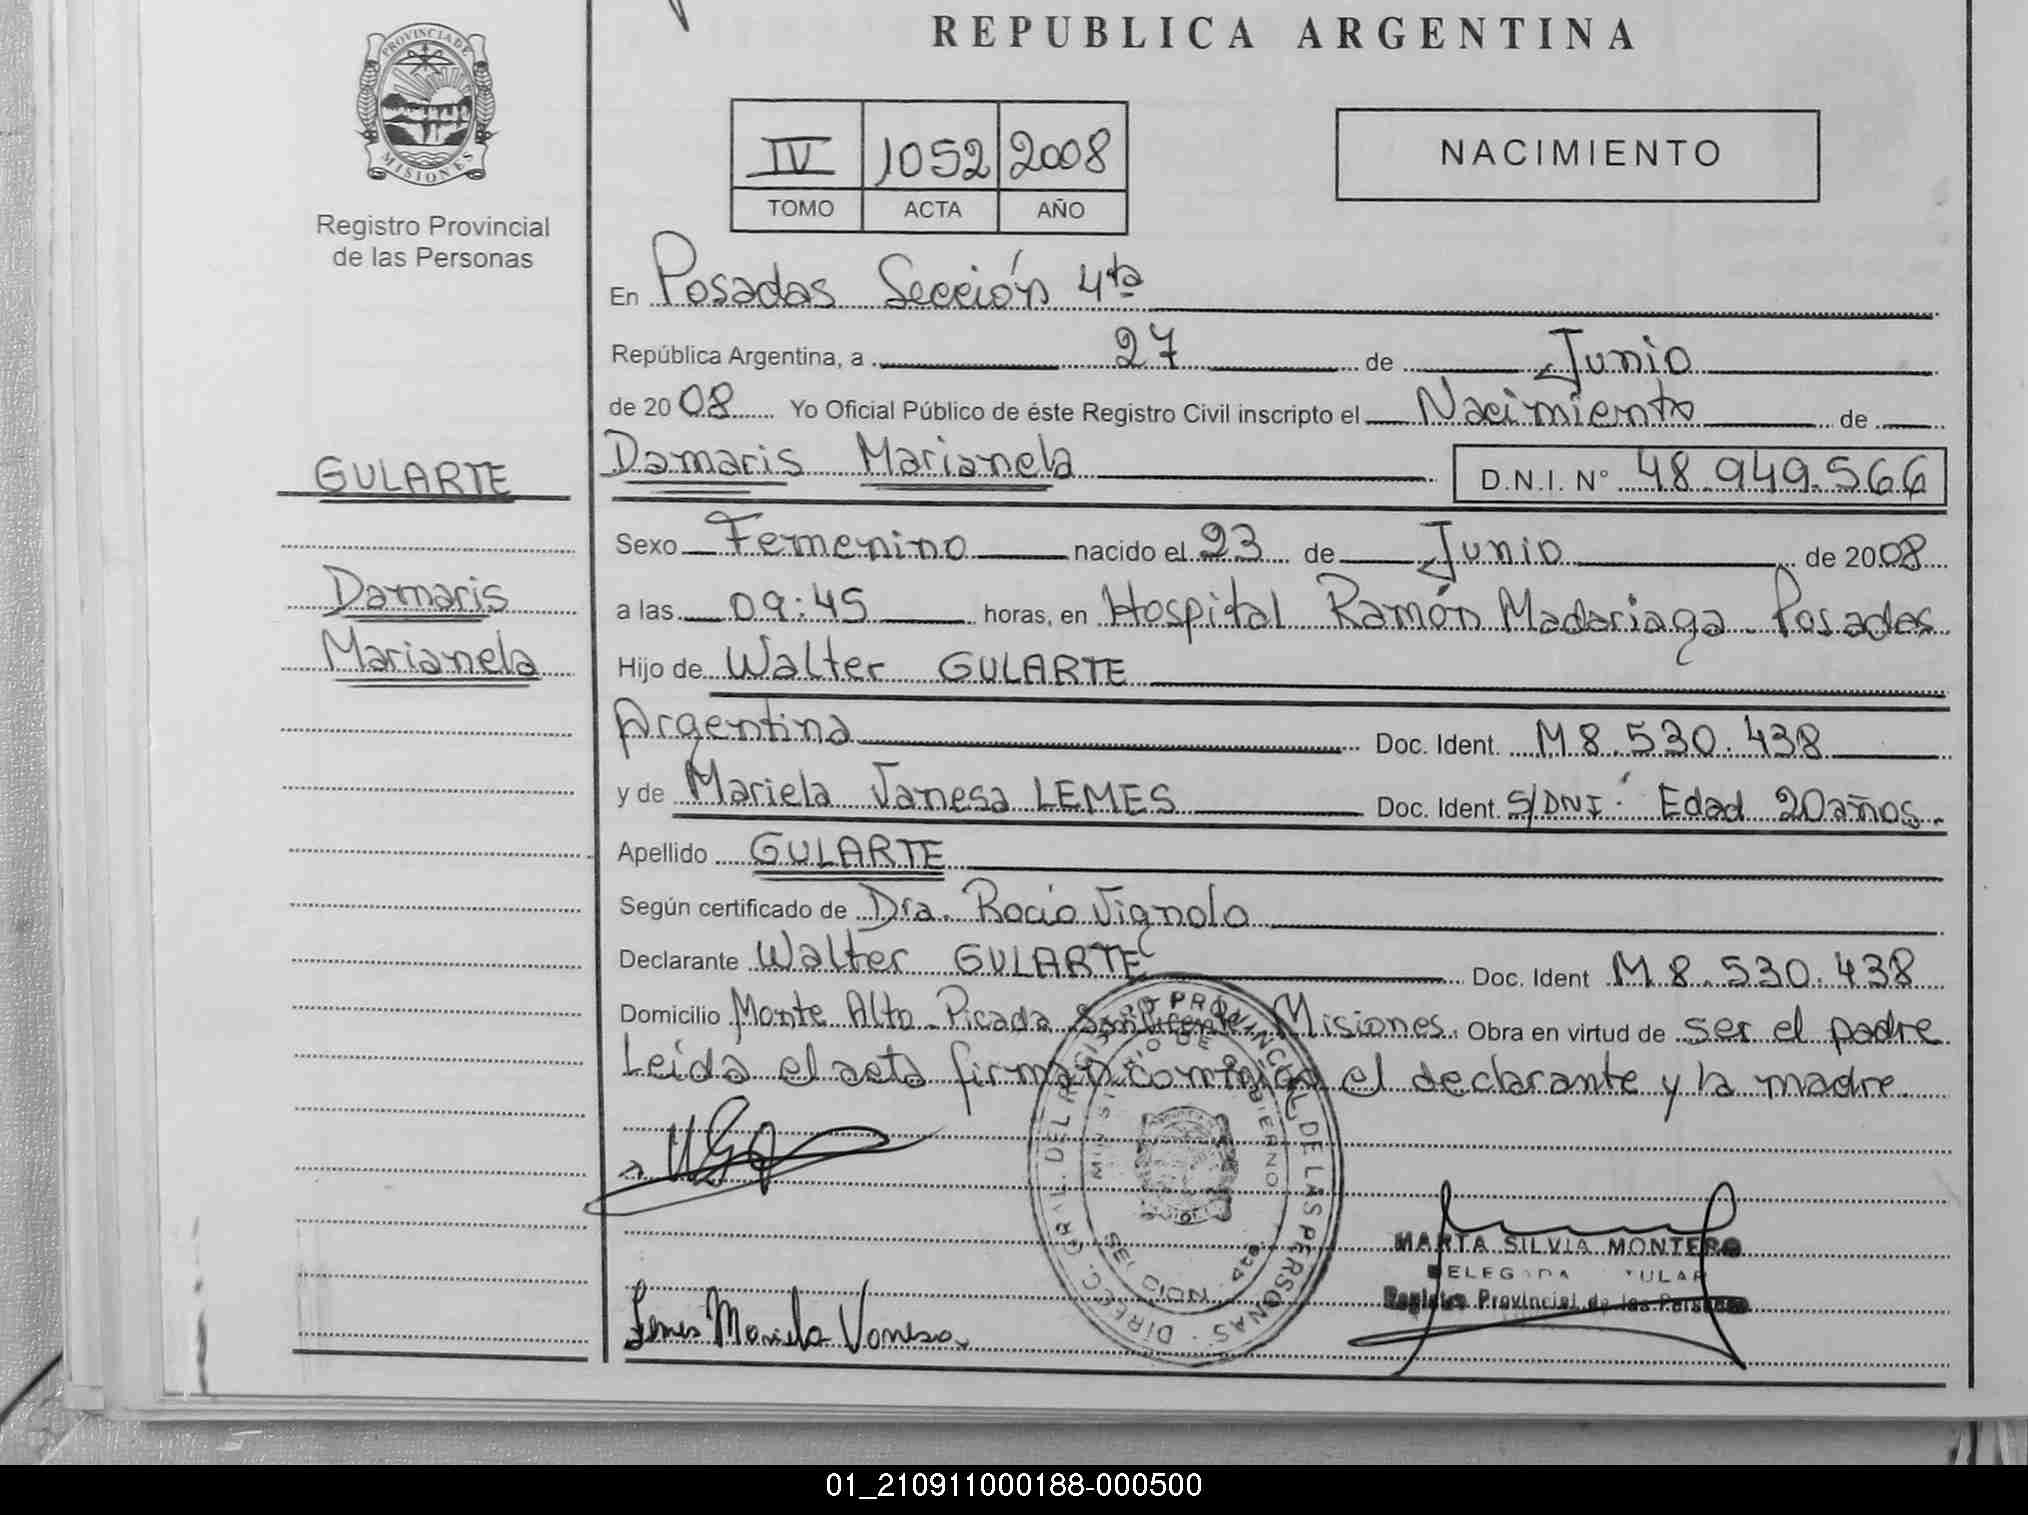 REPUBLICA ARGENTINA
PROVINCIA DE MISIONES
Registro Provincial
de las Personas
IV 1052 2008
TOMO ACTA AÑO
NACIMIENTO
En Posadas Sección 4ta
República Argentina, a 27 de Junio
de 2008 Yo Oficial Público de éste Registro Civil inscripto el Nacimiento de
GULARTE
Damaris
Marianela
Damaris Marianela D.N.I. Nº 48.949.566
Sexo Femenino nacido el 23 de Junio de 2008
a las 09:45 horas, en Hospital Ramón Madariaga Posadas
Hijo de Walter GULARTE
Argentina Doc. Ident. M 8.530.438
y de Mariela Vanesa LEMES Doc. Ident. S/DNI. Edad 20 años.
Apellido GULARTE
Según certificado de Dra. Rocio Vignolo
Declarante Walter GULARTE Doc. Ident M 8.530.438
Domicilio Monte Alto Picada Misiones. Obra en virtud de ser el padre
Leída el acta firman conmigo el declarante y la madre.
DIRECC. GRAL. DEL REGISTRO PROVINCIAL DE LAS PERSONAS
MINISTERIO DE GOBIERNO
Lemes Mariela Vanesa
MARTA SILVIA MONTERO
DELEGADA TITULAR
Registro Provincial de las Personas
01_210911000188-000500